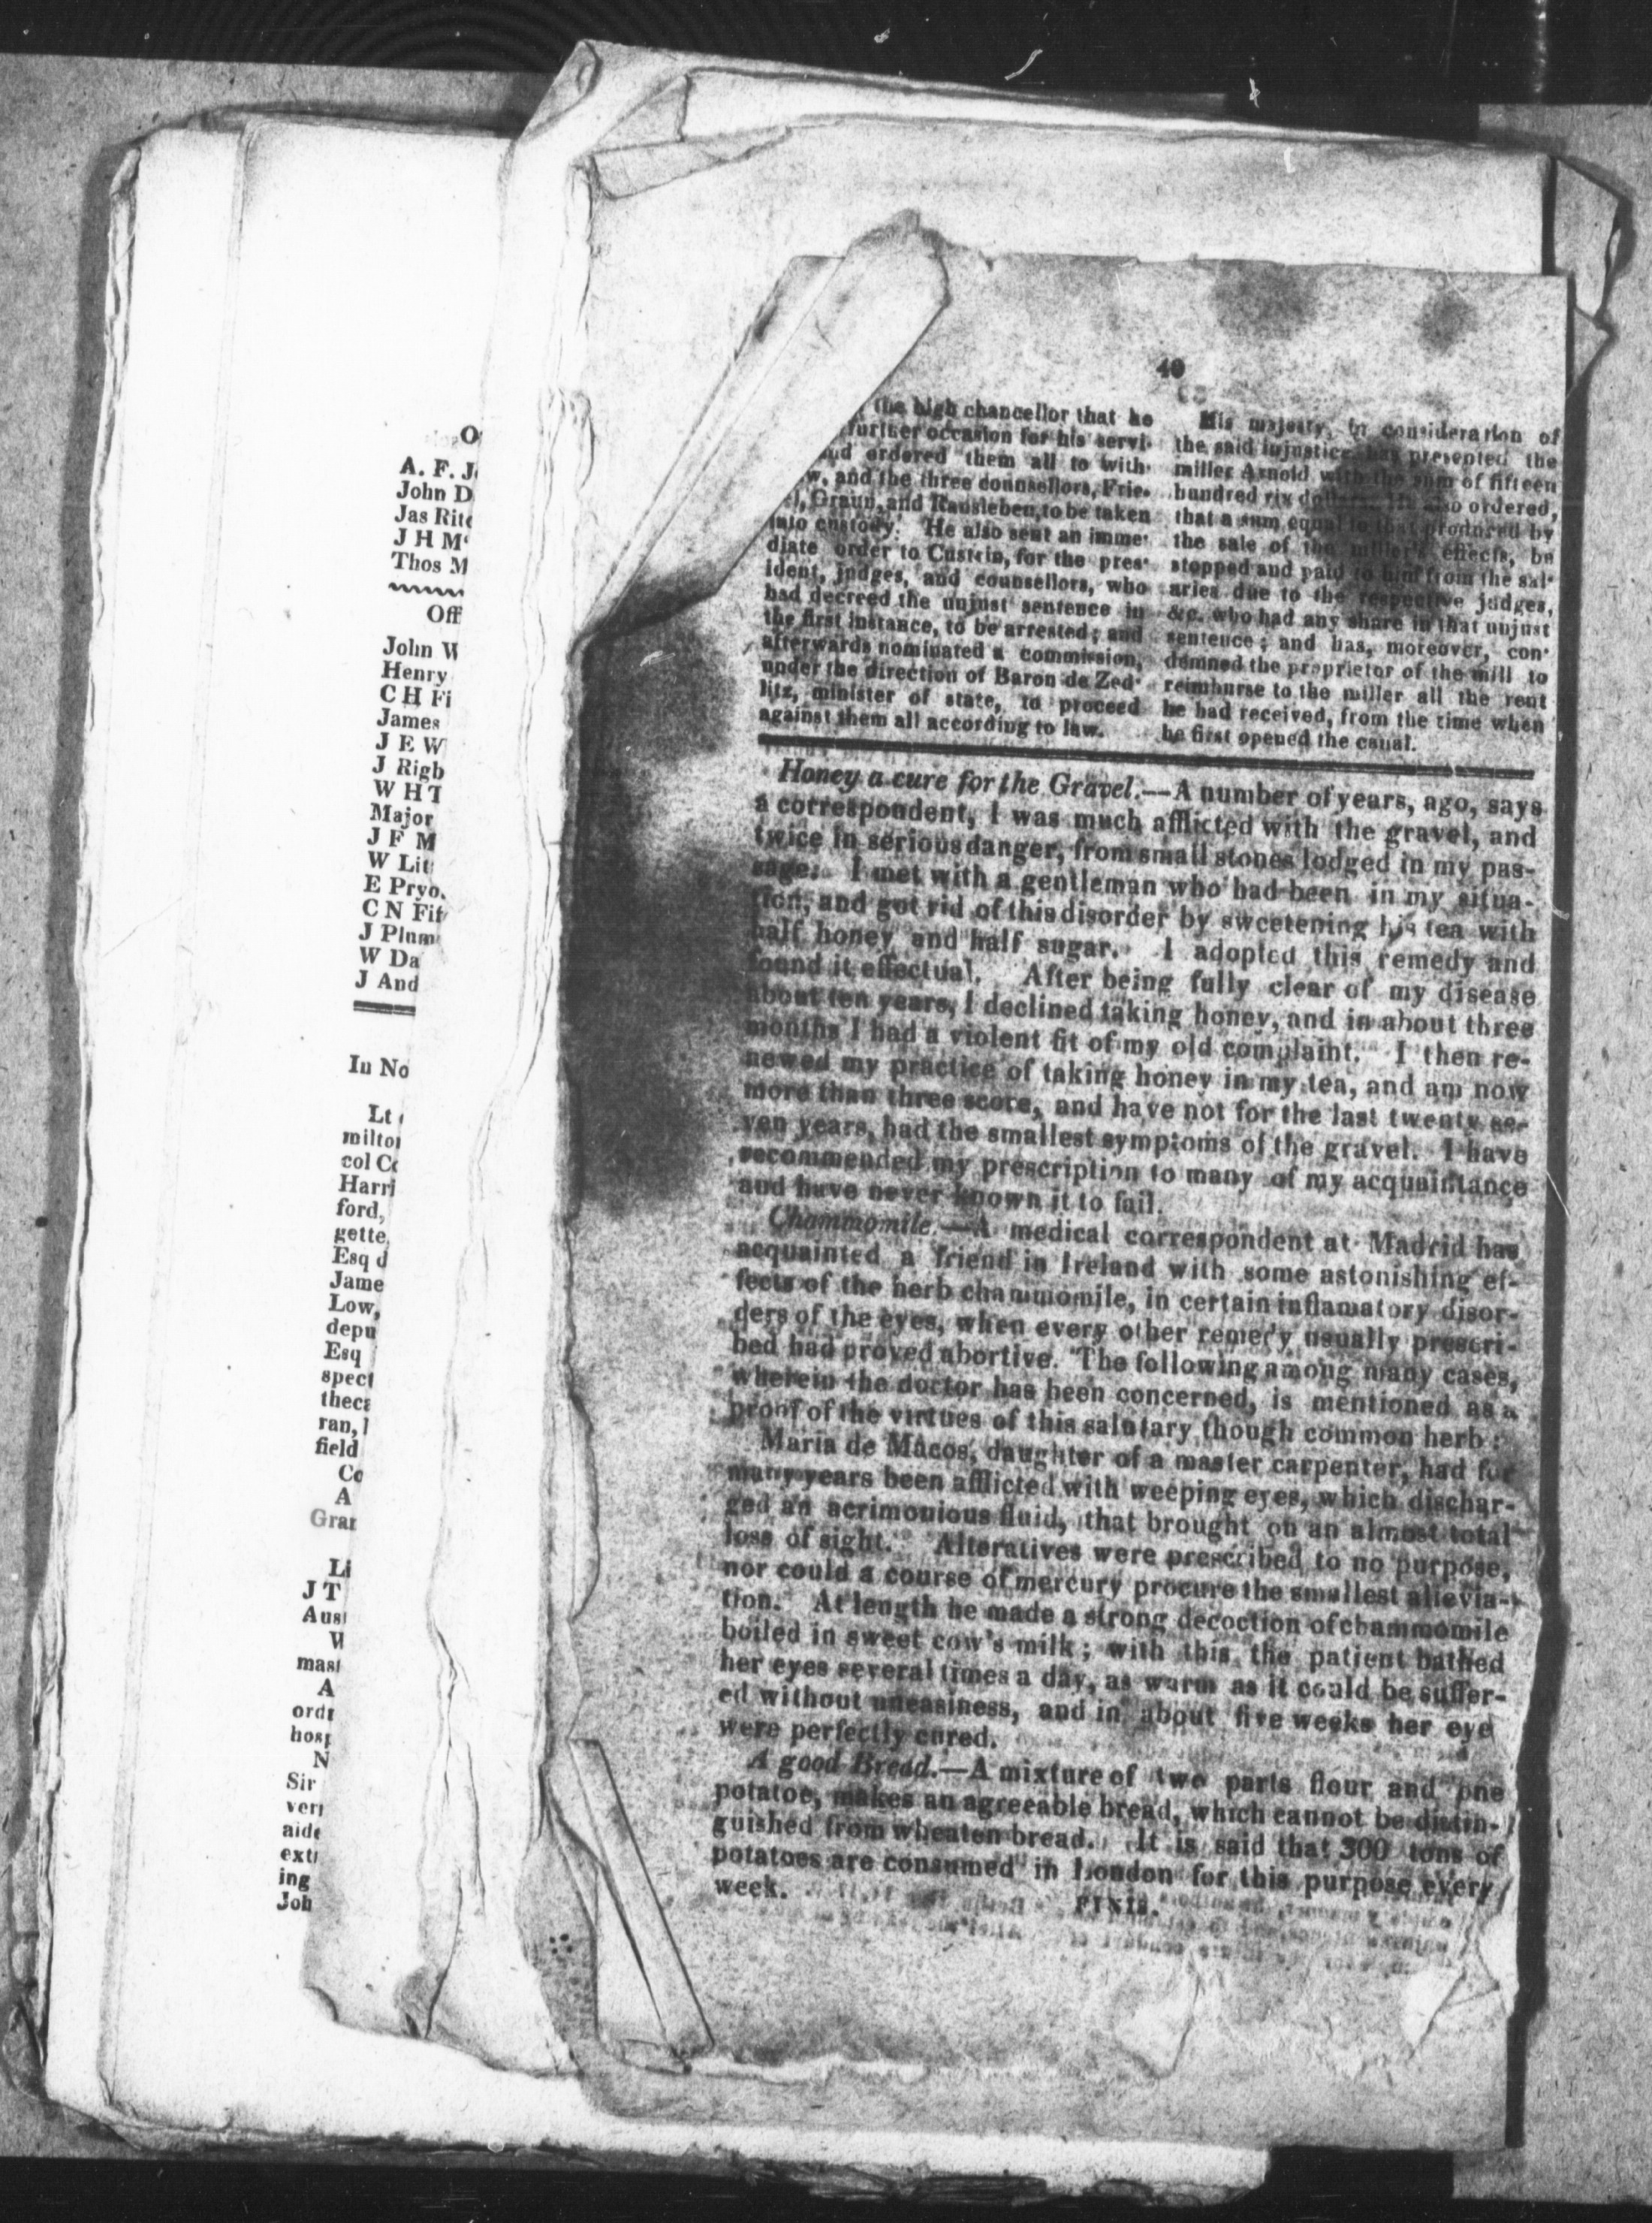 O
A. F. J
John D
Jas Rit
J H M
Thos M
Off
John W
Henry
C H Fi
James
J E W
J Rigb
W H T
Major
J F M
W Lit
E Pryo
C N Fit
J Plum
W Da
J And
In No
Lt
milto
col C
Harri
ford,
gette
Esq d
Jame
Low,
depu
Esq
spect
thec
ran,
field
Co
A
Gran
Li
J T
Aus
W
mast
A
ord
hosp
N
Sir
ver
aide
ext
ing
Joh
40
the high chancellor that he
further occasion for his servi-
and ordered them all to with-
w, and the three counsellors, Frie-
el, Graun, and Rausleben, to be taken
into custody. He also sent an imme-
diate order to Custrin, for the pres-
ident, judges, and counsellors, who
had decreed the unjust sentence in
the first instance, to be arrested; and
afterwards nominated a commission,
under the direction of Baron de Zed-
litz, minister of state, to proceed
against them all according to law.
His majesty, in consideration of
the said injustice has presented the
miller Arnold with the sum of fifteen
hundred rix dollars. He also ordered,
that a sum equal to that produced by
the sale of the miller's effects, be
stopped and paid to him from the sal-
aries due to the respective judges,
&c. who had any share in that unjust
sentence; and has, moreover, con-
demned the proprietor of the mill to
reimburse to the miller all the rent
he had received, from the time when
he first opened the canal.
Honey a cure for the Gravel.—A number of years, ago, says
a correspondent, I was much afflicted with the gravel, and
twice in serious danger, from small stones lodged in my pas-
sage. I met with a gentleman who had been in my situa-
tion, and got rid of this disorder by sweetening his tea with
half honey and half sugar. I adopted this remedy and
found it effectual. After being fully clear of my disease
about ten years, I declined taking honey, and in about three
months I had a violent fit of my old complaint. I then re-
newed my practice of taking honey in my tea, and am now
more than three score, and have not for the last twenty se-
ven years, had the smallest symptoms of the gravel. I have
recommended my prescription to many of my acquaintance
and have never known it to fail.
Chammomile.—A medical correspondent at Madrid has
acquainted a friend in Ireland with some astonishing ef-
fects of the herb chammomile, in certain inflamatory disor-
ders of the eyes, when every other remedy usually prescri-
bed had proved abortive. The following among many cases,
wherein the doctor has been concerned, is mentioned as a
proof of the virtues of this salutary though common herb:
Maria de Macos, daughter of a master carpenter, had for
many years been afflicted with weeping eyes, which dischar-
ged an acrimonious fluid, that brought on an almost total
loss of sight. Alteratives were prescribed to no purpose,
nor could a course of mercury procure the smallest allevia-
tion. At length he made a strong decoction of chammomile
boiled in sweet cow's milk; with this the patient bathed
her eyes several times a day, as warm as it could be suffer-
ed without uneasiness, and in about five weeks her eye
were perfectly cured.
A good Bread.—A mixture of two parts flour and one
potatoe, makes an agreeable bread, which cannot be distin-
guished from wheaten bread. It is said that 300 tons of
potatoes are consumed in London for this purpose every
week.
FINIS.